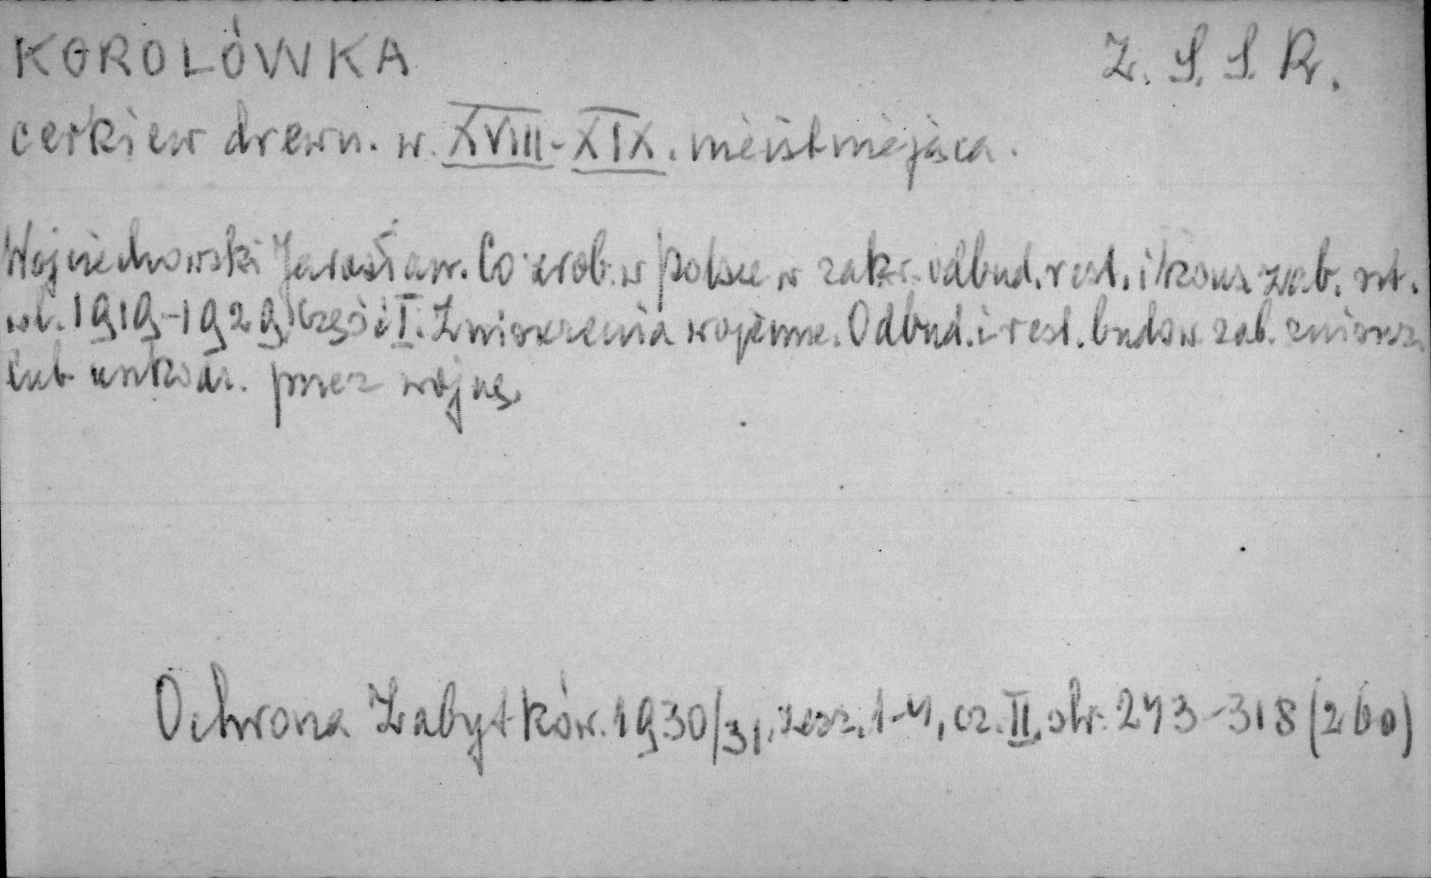 KOROLÓWKA Z.S.S.R.
cerkiew drewn. w. XVIII-XIX. nieistniejąca.
Wojciechowski Jarosław. Co zrob. w Polsce w zakr. odbud. rest. i kons. zab. szt.
w l. 1919-1929 Część I. Zniszczenia wojenne. Odbud. i rest. budow. zab. zniszcz.
lub uszkodz. przez wojnę.
Ochrona Zabytków. 1930/31. zesz. 1-4, cz. II, str. 243-318 (260)